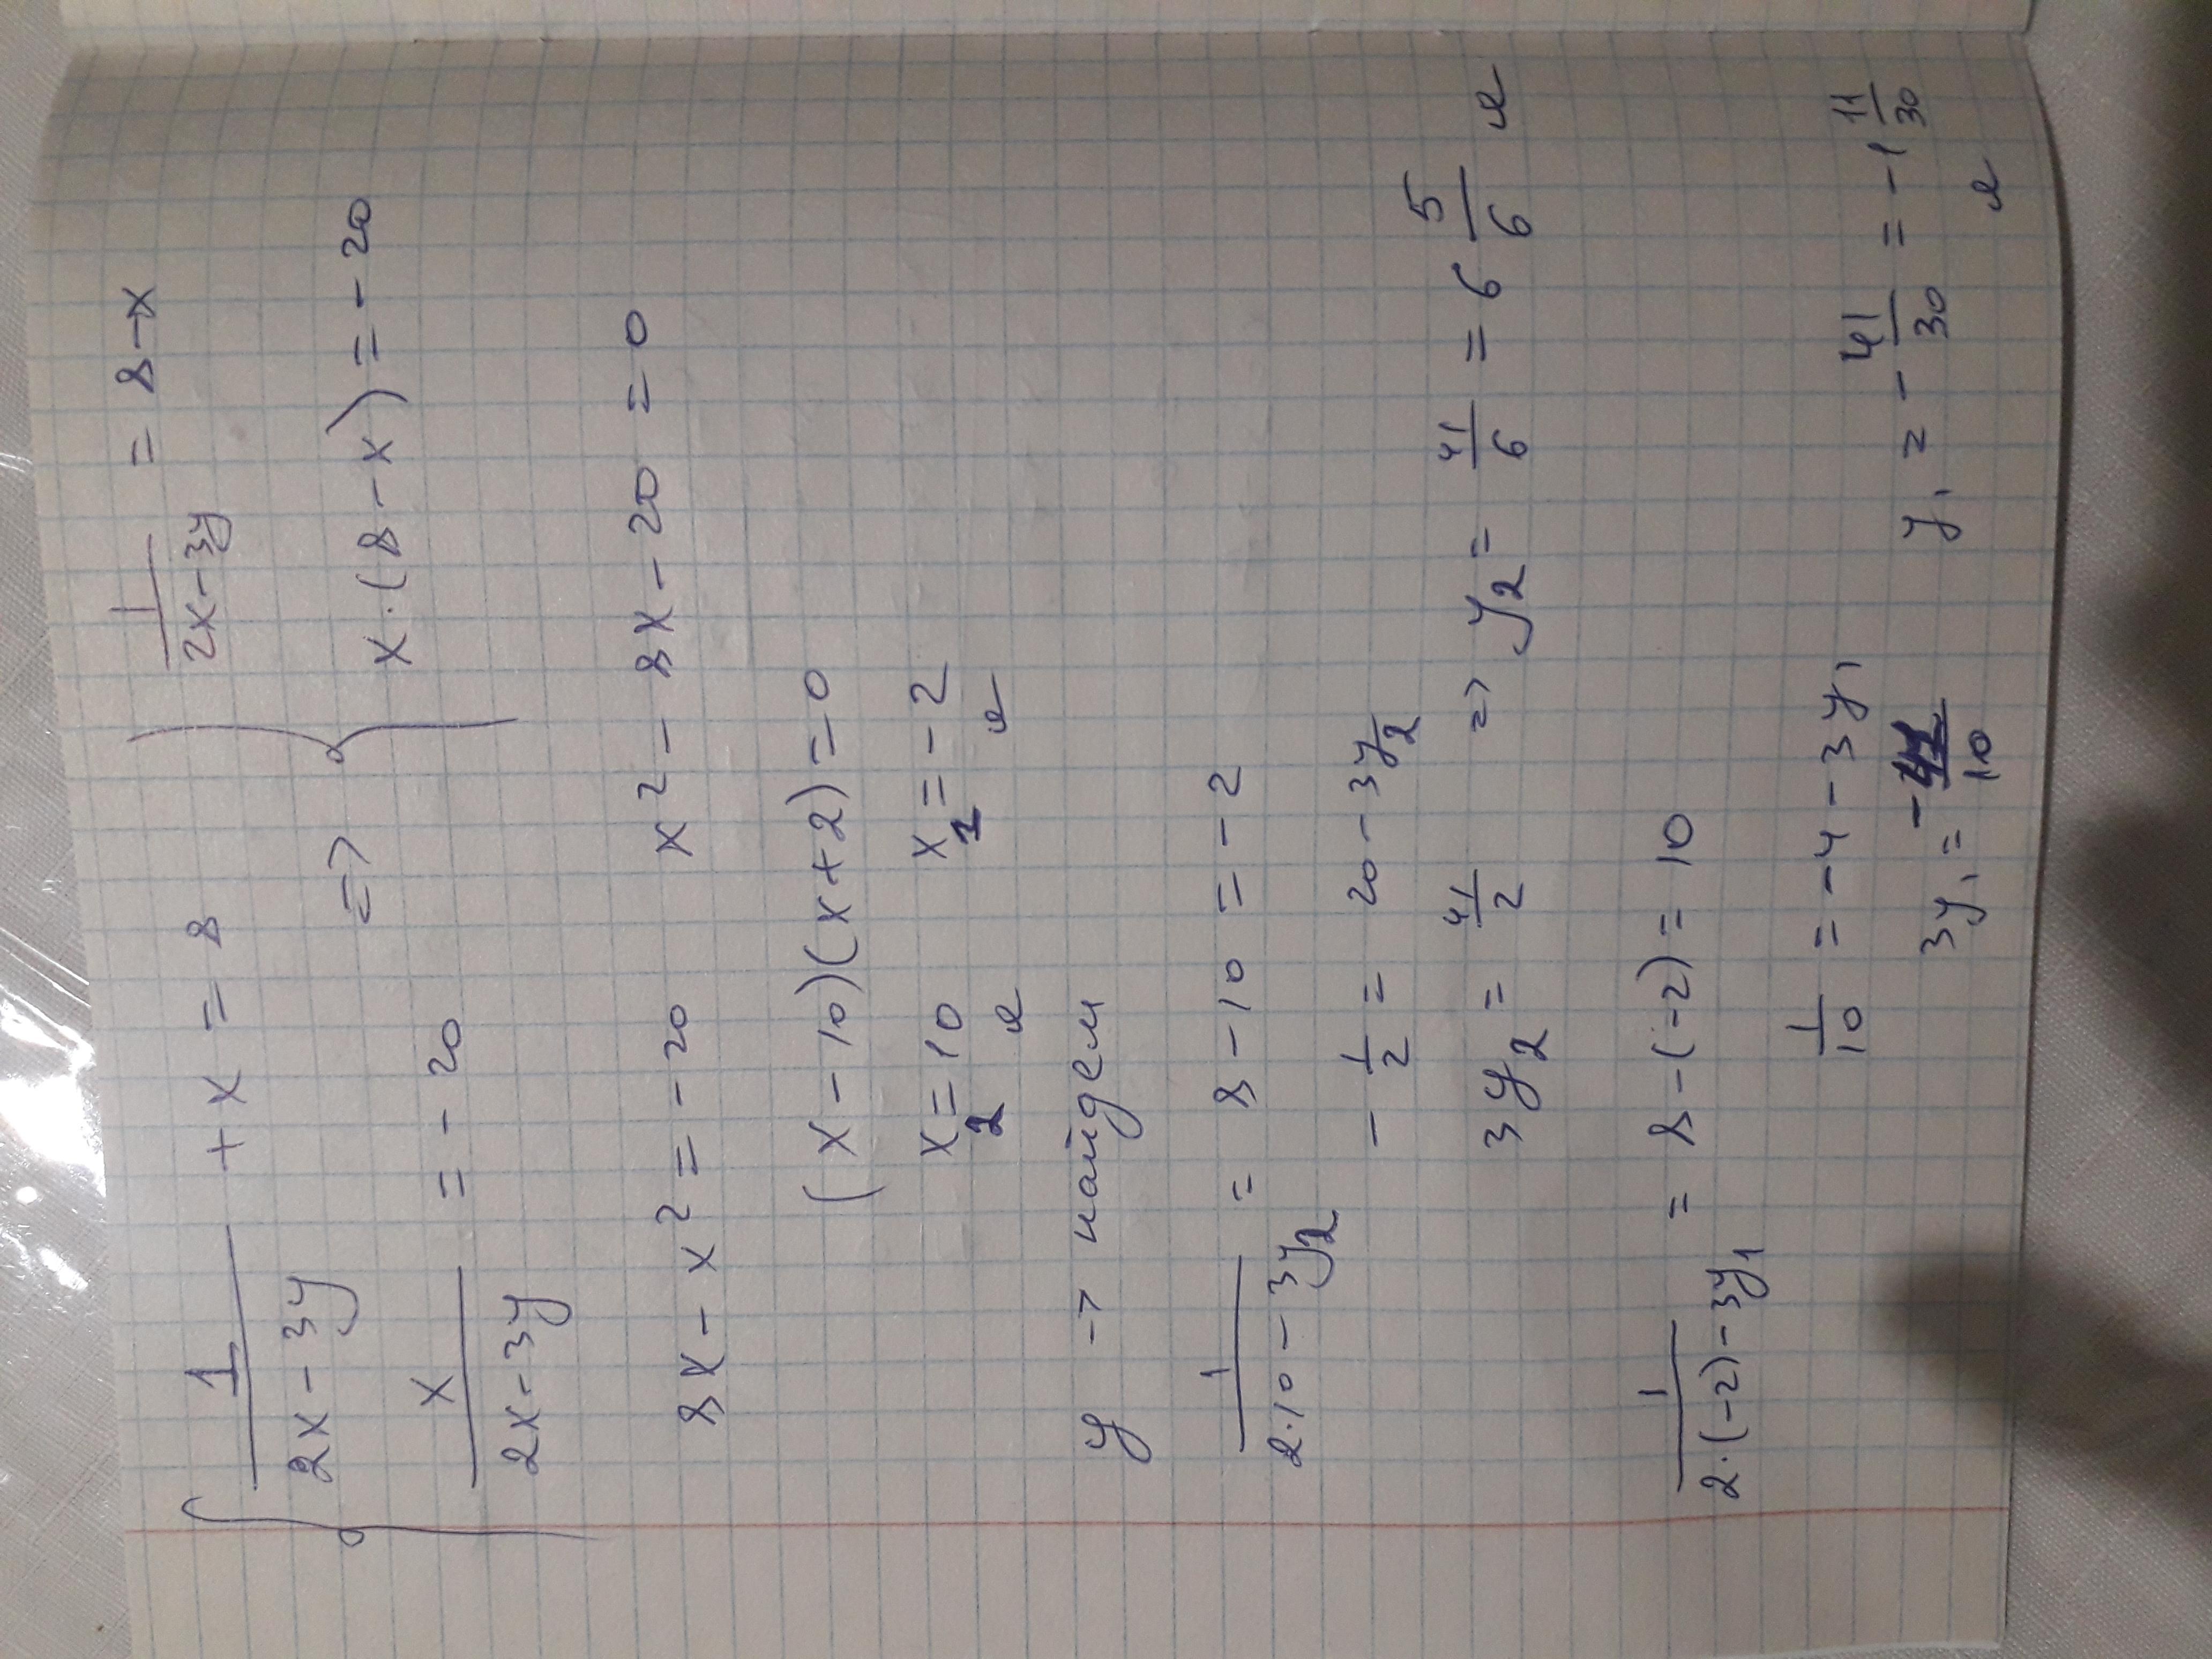 { 1/(2x-3y) + x = 8 => { 1/(2x-3y) = 8-x
x/(2x-3y) = -20 x·(8-x) = -20
8x - x² = -20 x² - 8x - 20 = 0
(x-10)(x+2)=0
x₂=10 x₁=-2
y → найдем
1/(2·10-3y₂) = 8-10 = -2
-1/2 = 20-3y₂
3y₂ = 41/2 => y₂ = 41/6 = 6 5/6
1/(2·(-2)-3y₁) = 8-(-2) = 10
1/10 = -4-3y₁
3y₁ = -41/10 y₁ = -41/30 = -1 11/30